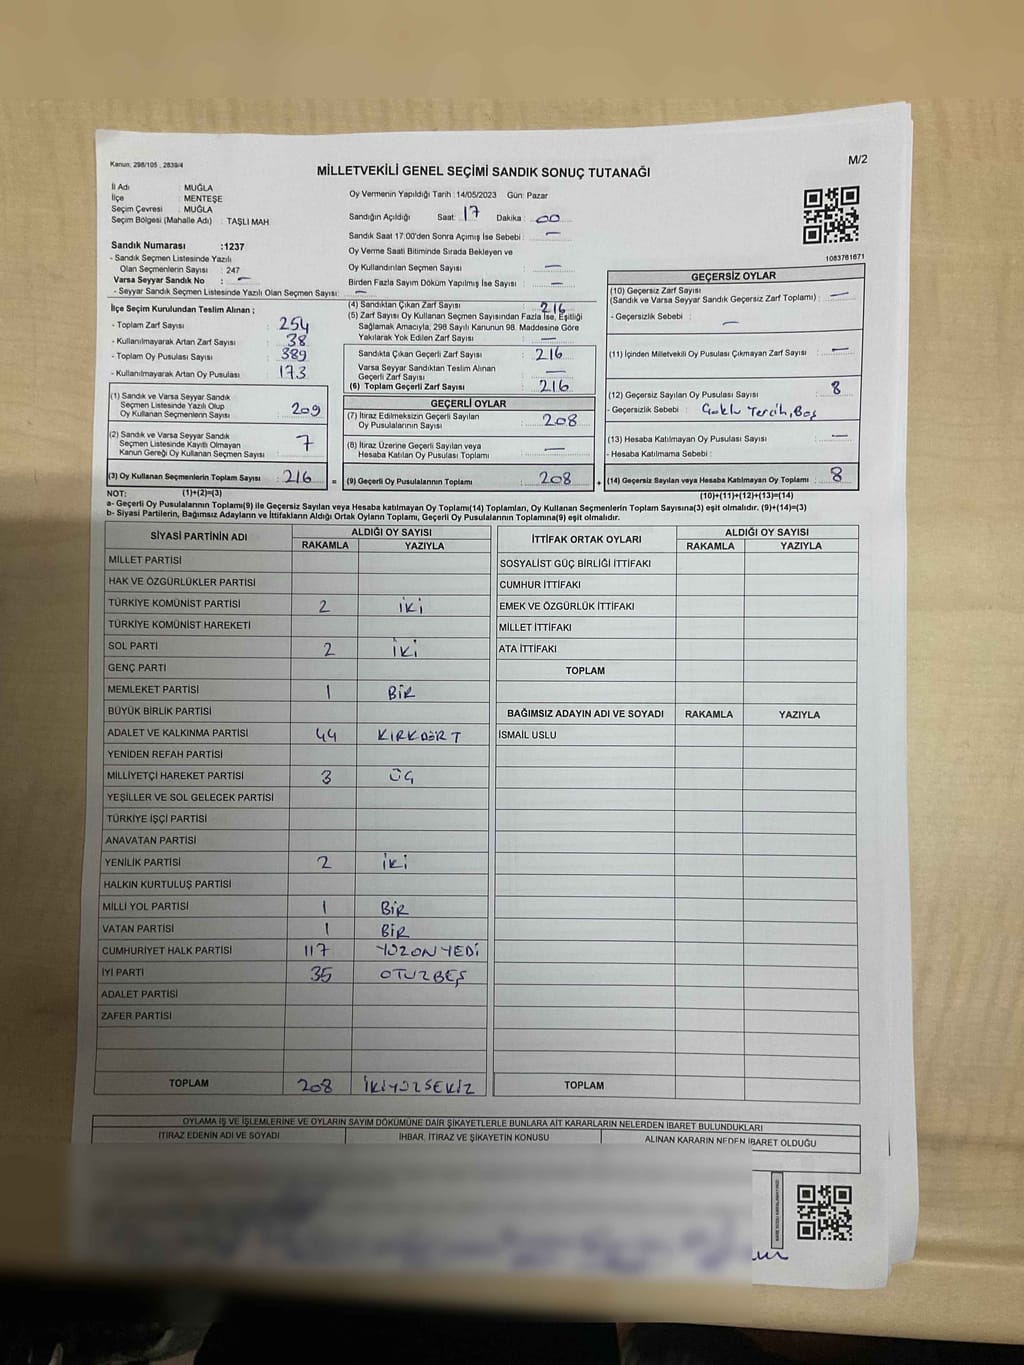 Kanun, 298/105 , 2839/4
M/2
MİLLETVEKİLİ GENEL SEÇİMİ SANDIK SONUÇ TUTANAĞI
İl Adı : MUĞLA
İlçe : MENTEŞE
Seçim Çevresi : MUĞLA
Seçim Bölgesi (Mahalle Adı) : TAŞLI MAH
Sandık Numarası :1237
- Sandık Seçmen Listesinde Yazılı
Olan Seçmenlerin Sayısı : 247
Varsa Seyyar Sandık No : –
- Seyyar Sandık Seçmen Listesinde Yazılı Olan Seçmen Sayısı: –
Oy Vermenin Yapıldığı Tarih : 14/05/2023 Gün: Pazar
Sandığın Açıldığı Saat: 17 Dakika : 00
Sandık Saat 17:00'den Sonra Açımış İse Sebebi : –
Oy Verme Saati Bitiminde Sırada Bekleyen ve
Oy Kullandırılan Seçmen Sayısı –
Birden Fazla Sayım Döküm Yapılmış İse Sayısı : –
1083761671
İlçe Seçim Kurulundan Teslim Alınan ;
- Toplam Zarf Sayısı : 254
- Kullanılmayarak Artan Zarf Sayısı : 38
- Toplam Oy Pusulası Sayısı : 389
- Kullanılmayarak Artan Oy Pusulası : 173
(1) Sandık ve Varsa Seyyar Sandık
Seçmen Listesinde Yazılı Olup
Oy Kullanan Seçmenlerin Sayısı : 209
(2) Sandık ve Varsa Seyyar Sandık
Seçmen Listesinde Kayıtlı Olmayan
Kanun Gereği Oy Kullanan Seçmen Sayısı : 7
(3) Oy Kullanan Seçmenlerin Toplam Sayısı : 216 =
(4) Sandıktan Çıkan Zarf Sayısı : 216
(5) Zarf Sayısı Oy Kullanan Seçmen Sayısından Fazla İse, Eşitliği
Sağlamak Amacıyla, 298 Sayılı Kanunun 98. Maddesine Göre
Yakılarak Yok Edilen Zarf Sayısı : –
Sandıkta Çıkan Geçerli Zarf Sayısı : 216
Varsa Seyyar Sandıktan Teslim Alınan
Geçerli Zarf Sayısı : –
(6) Toplam Geçerli Zarf Sayısı : 216
GEÇERLİ OYLAR
(7) İtiraz Edilmeksizin Geçerli Sayılan
Oy Pusulalarının Sayısı : 208
(8) İtiraz Üzerine Geçerli Sayılan veya
Hesaba Katılan Oy Pusulası Toplamı : –
(9) Geçerli Oy Pusulalarının Toplamı : 208 +
GEÇERSİZ OYLAR
(10) Geçersiz Zarf Sayısı
(Sandık ve Varsa Seyyar Sandık Geçersiz Zarf Toplamı) : –
- Geçersizlik Sebebi : –
(11) İçinden Milletvekili Oy Pusulası Çıkmayan Zarf Sayısı : –
(12) Geçersiz Sayılan Oy Pusulası Sayısı : 8
- Geçersizlik Sebebi : Çoklu Tercih, Boş
(13) Hesaba Katılmayan Oy Pusulası Sayısı : –
- Hesaba Katılmama Sebebi :
(14) Geçersiz Sayılan veya Hesaba Katılmayan Oy Toplamı : 8
NOT: (1)+(2)=(3)
(10)+(11)+(12)+(13)=(14)
a- Geçerli Oy Pusulalarının Toplamı(9) ile Geçersiz Sayılan veya Hesaba katılmayan Oy Toplamı(14) Toplamları, Oy Kullanan Seçmenlerin Toplam Sayısına(3) eşit olmalıdır. (9)+(14)=(3)
b- Siyasi Partilerin, Bağımsız Adayların ve İttifakların Aldığı Ortak Oyların Toplamı, Geçerli Oy Pusulalarının Toplamına(9) eşit olmalıdır.
SİYASİ PARTİNİN ADI ALDIĞI OY SAYISI
RAKAMLA YAZIYLA
MİLLET PARTİSİ
HAK VE ÖZGÜRLÜKLER PARTİSİ
TÜRKİYE KOMÜNİST PARTİSİ 2 İKİ
TÜRKİYE KOMÜNİST HAREKETİ
SOL PARTİ 2 İKİ
GENÇ PARTİ
MEMLEKET PARTİSİ 1 BİR
BÜYÜK BİRLİK PARTİSİ
ADALET VE KALKINMA PARTİSİ 44 KIRKDÖRT
YENİDEN REFAH PARTİSİ
MİLLİYETÇİ HAREKET PARTİSİ 3 ÜÇ
YEŞİLLER VE SOL GELECEK PARTİSİ
TÜRKİYE İŞÇİ PARTİSİ
ANAVATAN PARTİSİ
YENİLİK PARTİSİ 2 İKİ
HALKIN KURTULUŞ PARTİSİ
MİLLİ YOL PARTİSİ 1 BİR
VATAN PARTİSİ 1 BİR
CUMHURİYET HALK PARTİSİ 117 YÜZONYEDİ
İYİ PARTİ 35 OTUZBEŞ
ADALET PARTİSİ
ZAFER PARTİSİ
TOPLAM 208 İKİYÜZSEKİZ
İTTİFAK ORTAK OYLARI ALDIĞI OY SAYISI
RAKAMLA YAZIYLA
SOSYALİST GÜÇ BİRLİĞİ İTTİFAKI
CUMHUR İTTİFAKI
EMEK VE ÖZGÜRLÜK İTTİFAKI
MİLLET İTTİFAKI
ATA İTTİFAKI
TOPLAM
BAĞIMSIZ ADAYIN ADI VE SOYADI RAKAMLA YAZIYLA
İSMAİL USLU
TOPLAM
OYLAMA İŞ VE İŞLEMLERİNE VE OYLARIN SAYIM DÖKÜMÜNE DAİR ŞİKAYETLERLE BUNLARA AİT KARARLARIN NELERDEN İBARET BULUNDUKLARI
İTİRAZ EDENİN ADI VE SOYADI İHBAR, İTİRAZ VE ŞİKAYETİN KONUSU ALINAN KARARIN NEDEN İBARET OLDUĞU